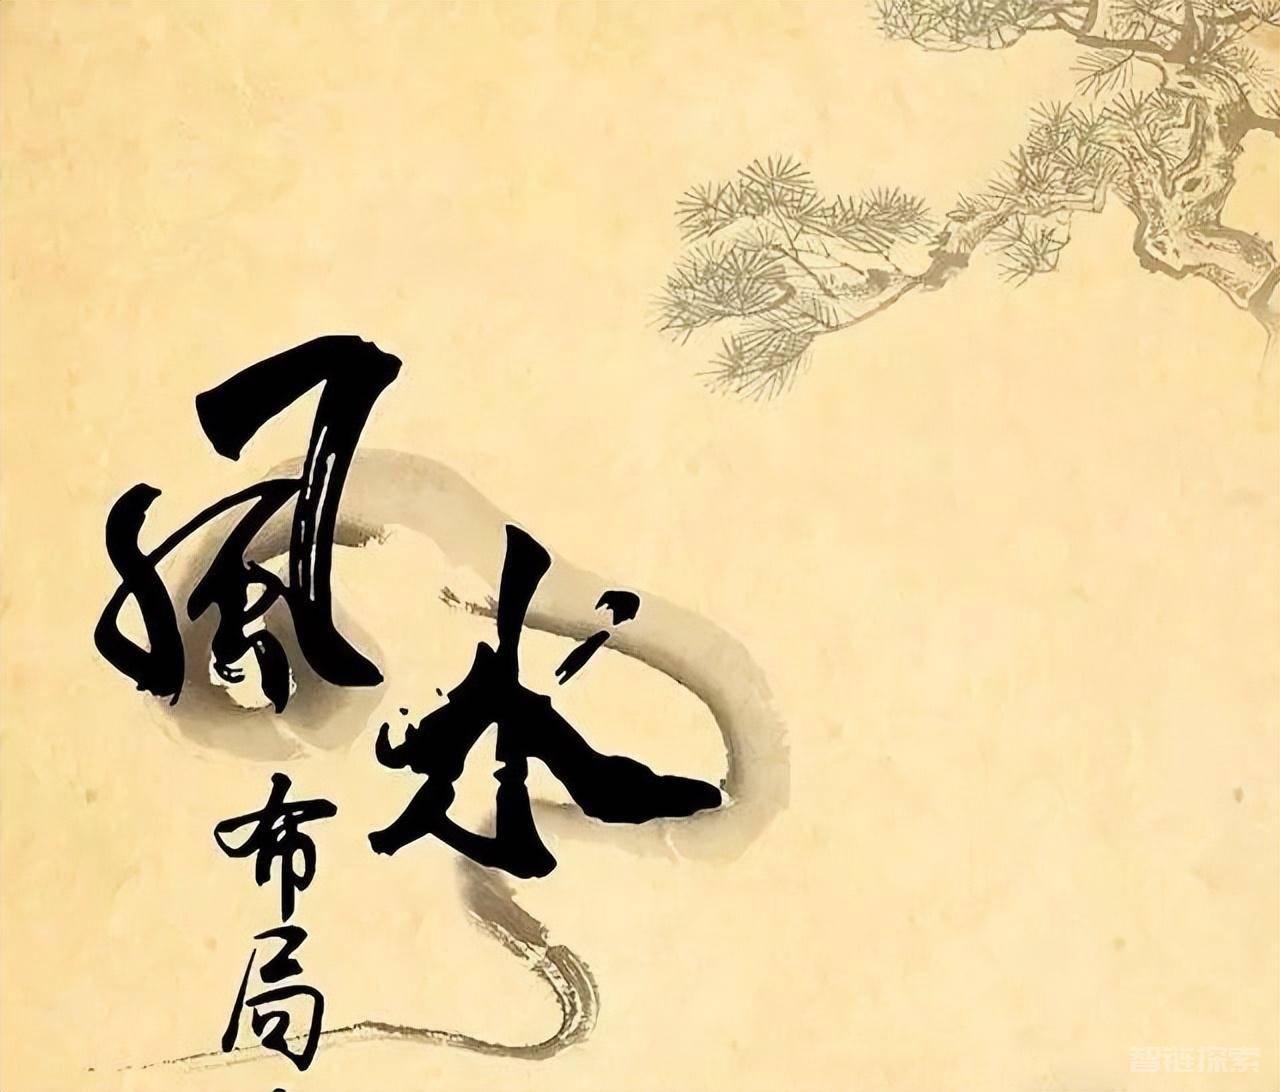 風水
布局
智链探索